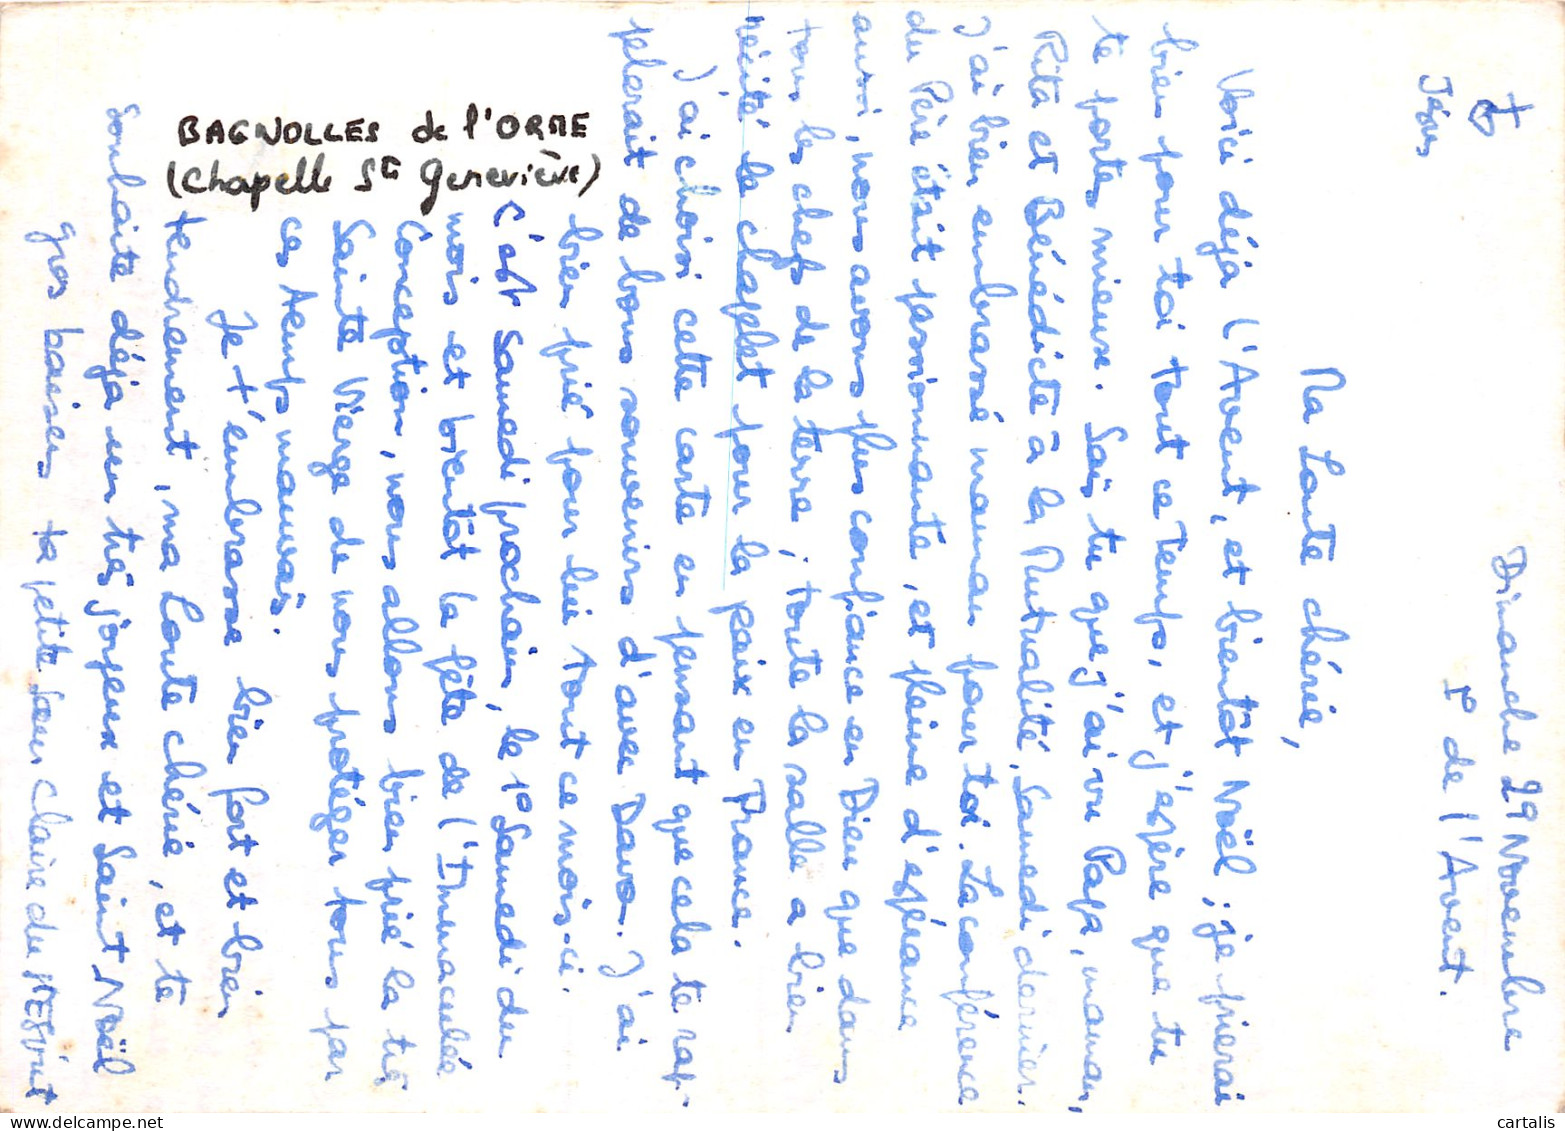 Dimanche 29 Novembre
1° de l'Avent.
Jésus
Ma Loute chérie,
Voici déjà l'Avent, et bientôt Noël ; je prierai
bien pour toi tout ce Temps, et j'espère que tu
te portes mieux. Sais tu que j'ai vu Papa, maman,
Rita et Bénédicte à la Mutualité, Samedi dernier.
J'ai bien embrassé maman pour toi. La conférence
du Père était passionnante, et pleine d'espérance
aussi, nous avons plus confiance en Dieu que dans
tous les chefs de la terre ; toute la salle a bien
récité le chapelet pour la paix en France.
J'ai choisi cette carte en pensant que cela te rap-
pelerait de bons souvenirs d'avec Davo. J'ai
bien prié pour lui tout ce mois-ci.
C'est Samedi prochain, le 1° Samedi du
mois et bientôt la fête de l'Immaculée
Conception, nous allons bien prié la très
Sainte Vierge de nous protéger tous par
ces temps mauvais.
Je t'embrasse bien fort et bien
tendrement, ma Loute chérie, et te
souhaite déjà un très joyeux et Saint Noël
gros baisers ta petite Soeur Claire du St Esprit
BAGNOLLES de l'ORNE
(Chapelle Ste Geneviève)
cartalis